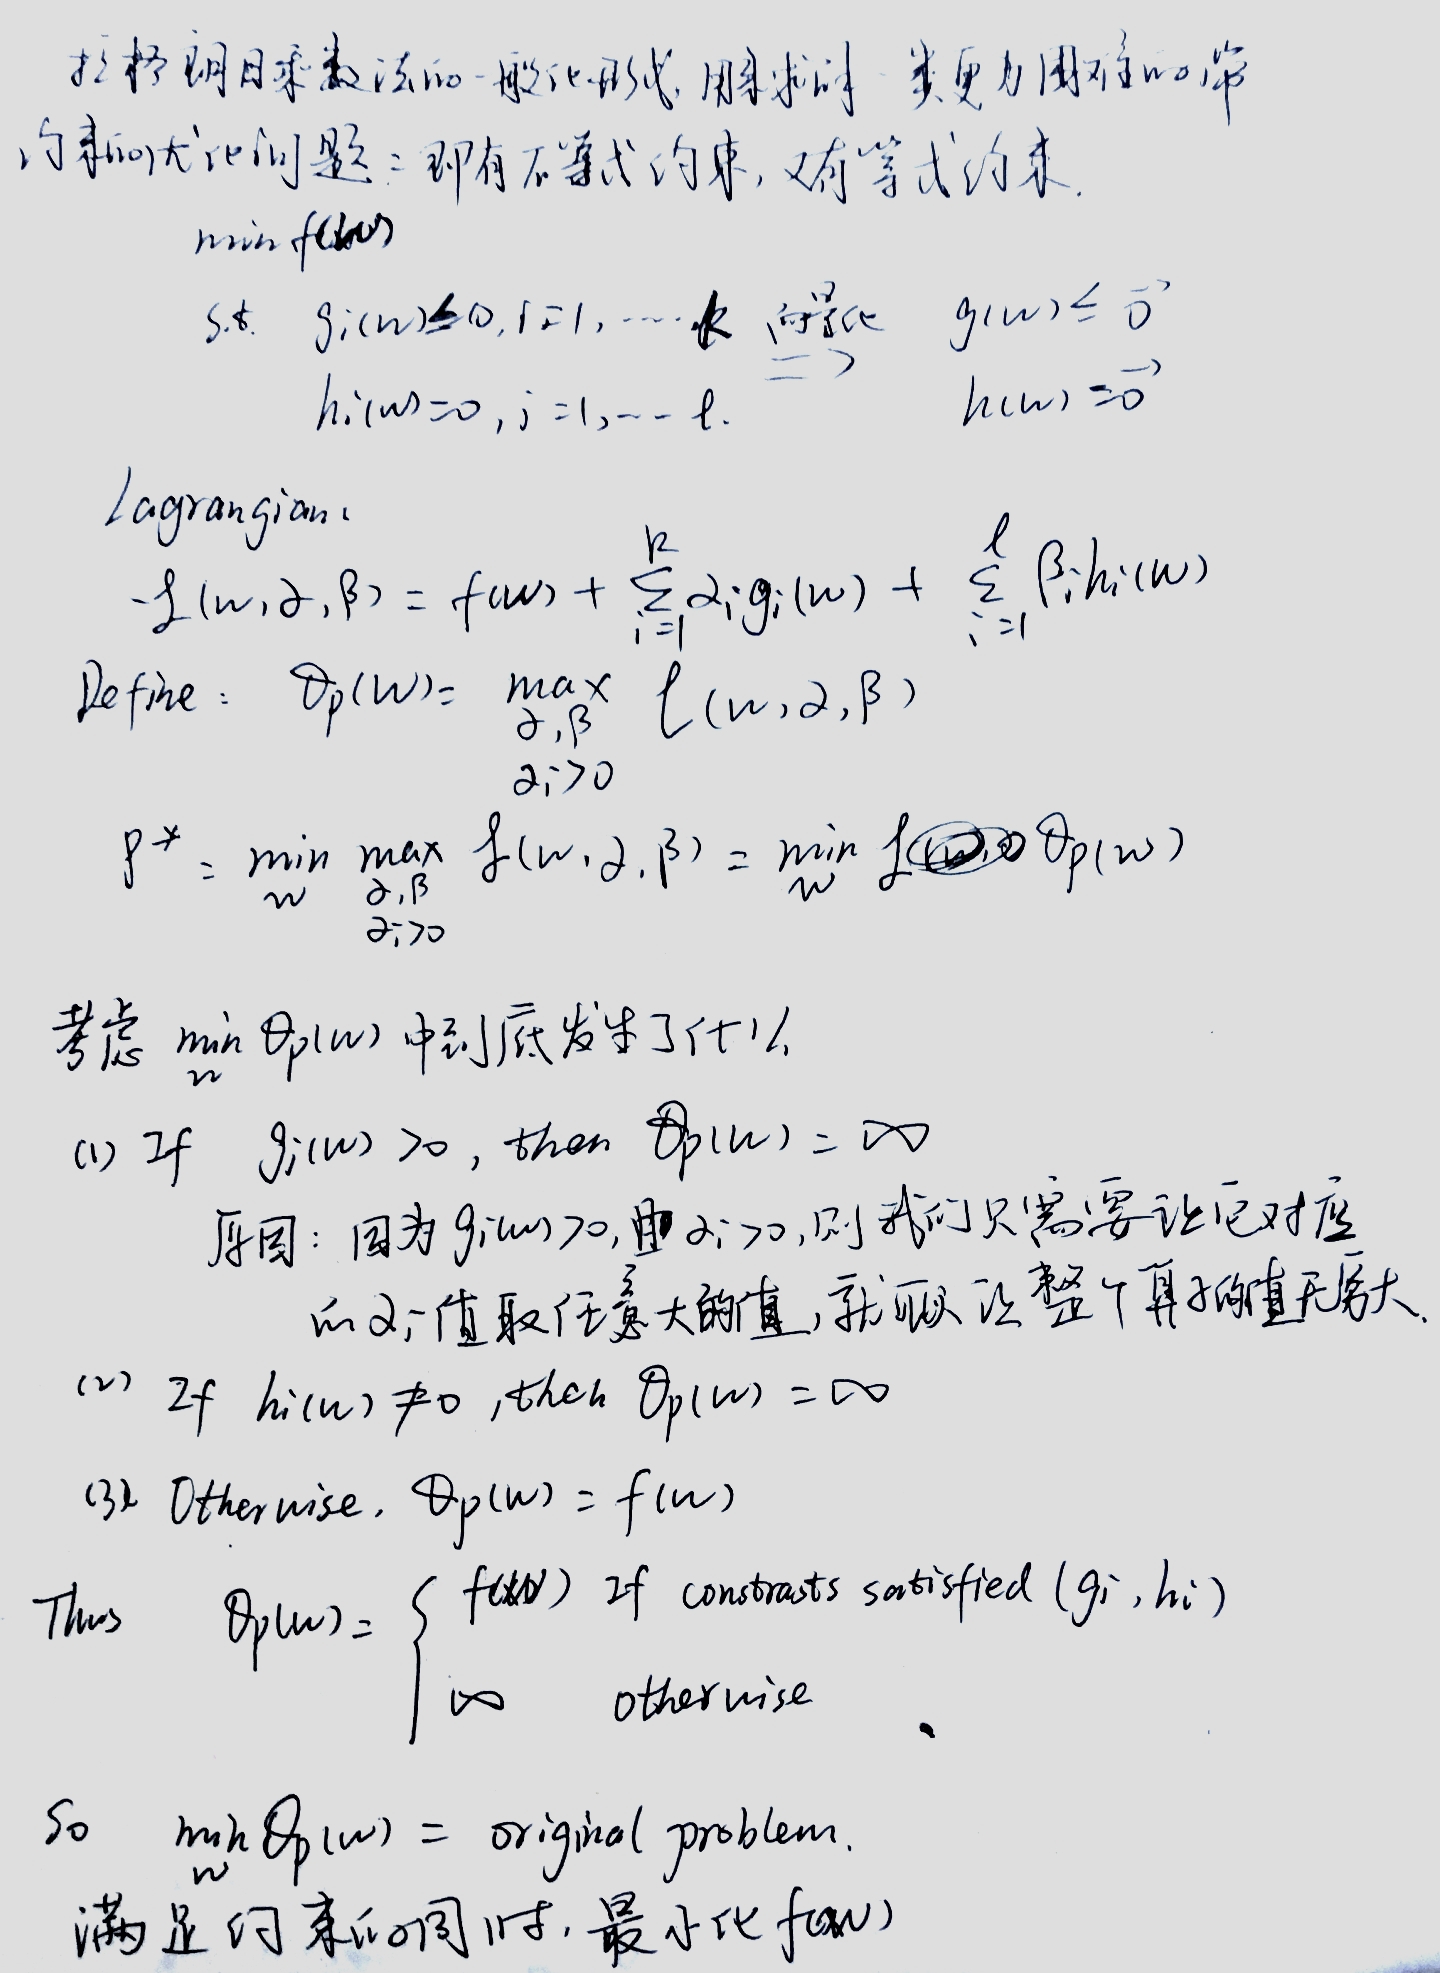 拉格朗日乘数法的一般化形式,用来求解一类更为困难的带
约束的优化问题:即有不等式约束,又有等式约束.
min f(w)
s.t. gi(w)≤0, i=1, ---- k 向量化 => g(w) ≤ 0⃗
hi(w)=0, j=1,--- l. h(w) = 0⃗
Lagrangian:
L(w,α,β) = f(w) + Σ_{i=1}^{k} αi gi(w) + Σ_{i=1}^{l} βi hi(w)
Define: θp(w) = max_{α,β αi>0} L(w,α,β)
P* = min_w max_{α,β αi>0} L(w,α,β) = min_w θp(w)
考虑 min_w θp(w) 中到底发生了什么
(1) If gi(w) >0, then θp(w) = ∞
原因: 因为 gi(w)>0, 且 αi>0, 则我们只需要让它对应
的 αi 值取任意大的值, 就可以让整个算子的值无穷大.
(2) If hi(w) ≠0, then θp(w) = ∞
(3) Otherwise. θp(w) = f(w)
Thus θp(w) = { f(w) If constrasts satisfied (gi, hi)
∞ otherwise
So min_w θp(w) = original problem.
满足约束的同时, 最小化 f(w)